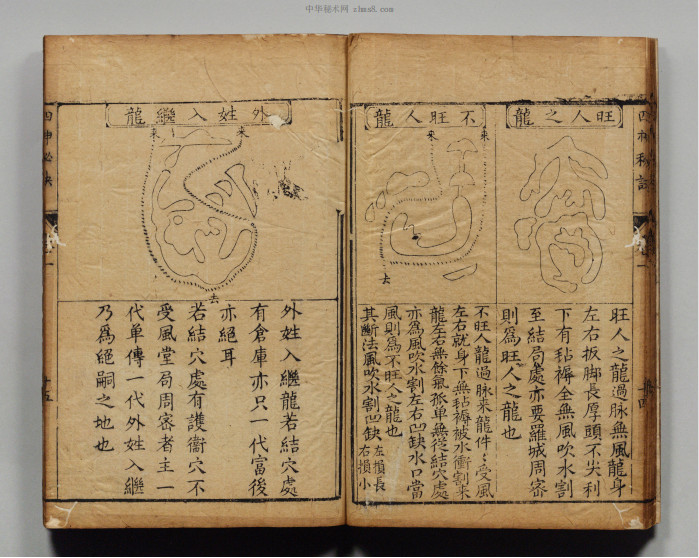 中华秘术网 zhms8.com
旺人之龍
旺人之龍過脉無風龍身
左右扳脚長厚頭不尖利
下有毡褥全無風吹水割
至結局處亦要羅城周密
則爲旺人之龍也
不旺人龍
来
来
去
不旺人龍過脉来龍件〻受風
左右就身下無毡褥被水衝割来
龍左右無餘氣孤单無從結穴處
亦爲風吹水割左右凹缺水口當
風則爲不旺人之龍也
其断法風吹水割凹缺左損長右損小
外姓入繼龍
来
来
去
外姓入繼龍若結穴處
有倉庫亦只一代富後
亦絕耳
若結穴處有護衛穴不
受風堂局周密者主一
代单傳一代外姓入繼
乃爲絕嗣之地也
四神秘訣
十五